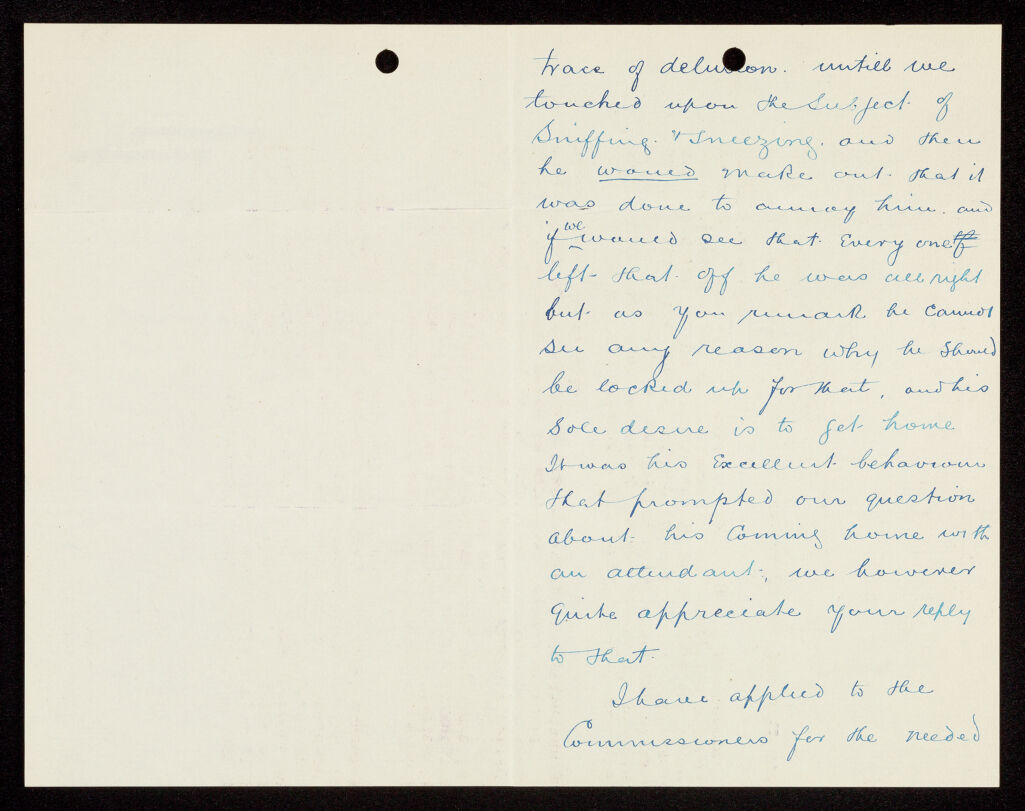 trace of delusion. untill we
touched upon the Subject of
Sniffing. & Sneezing. and then
he would make out that it
was done to annoy him. and
if we would see that Every one
left that off he was all right
but as you remark he Cannot
see any reason why he should
be locked up for that, and his
Sole desire is to get home
It was his Excellent behaviour
that prompted our question
about his Coming home with
an attendant, we however
quite appreciate your reply
to that.
I have applied to the
Commissioners for the needed